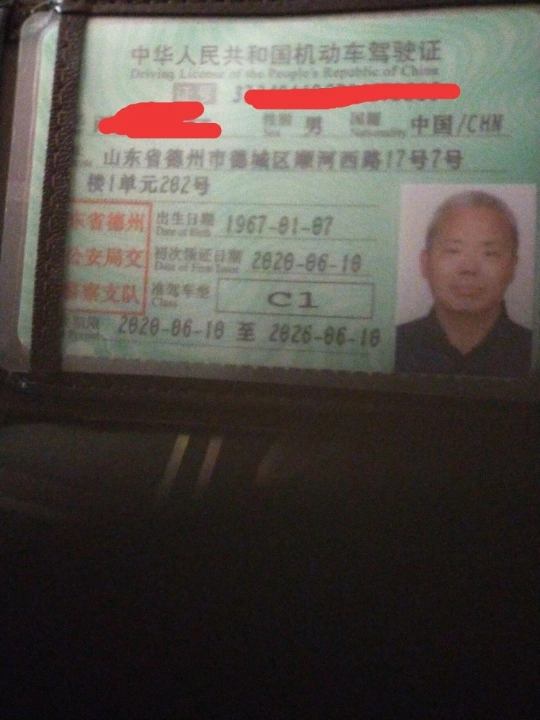 中华人民共和国机动车驾驶证
Driving License of the People's Republic of China
证号
性别 男 国籍 中国/CHN
Sex Nationality
山东省德州市德城区顺河西路17号7号
楼1单元202号
东省德州
公安局交
警察支队
出生日期 1967-01-07
Date of Birth
初次领证日期 2020-06-10
Date of First Issue
准驾车型 C1
Class
2020-06-10 至 2026-06-10